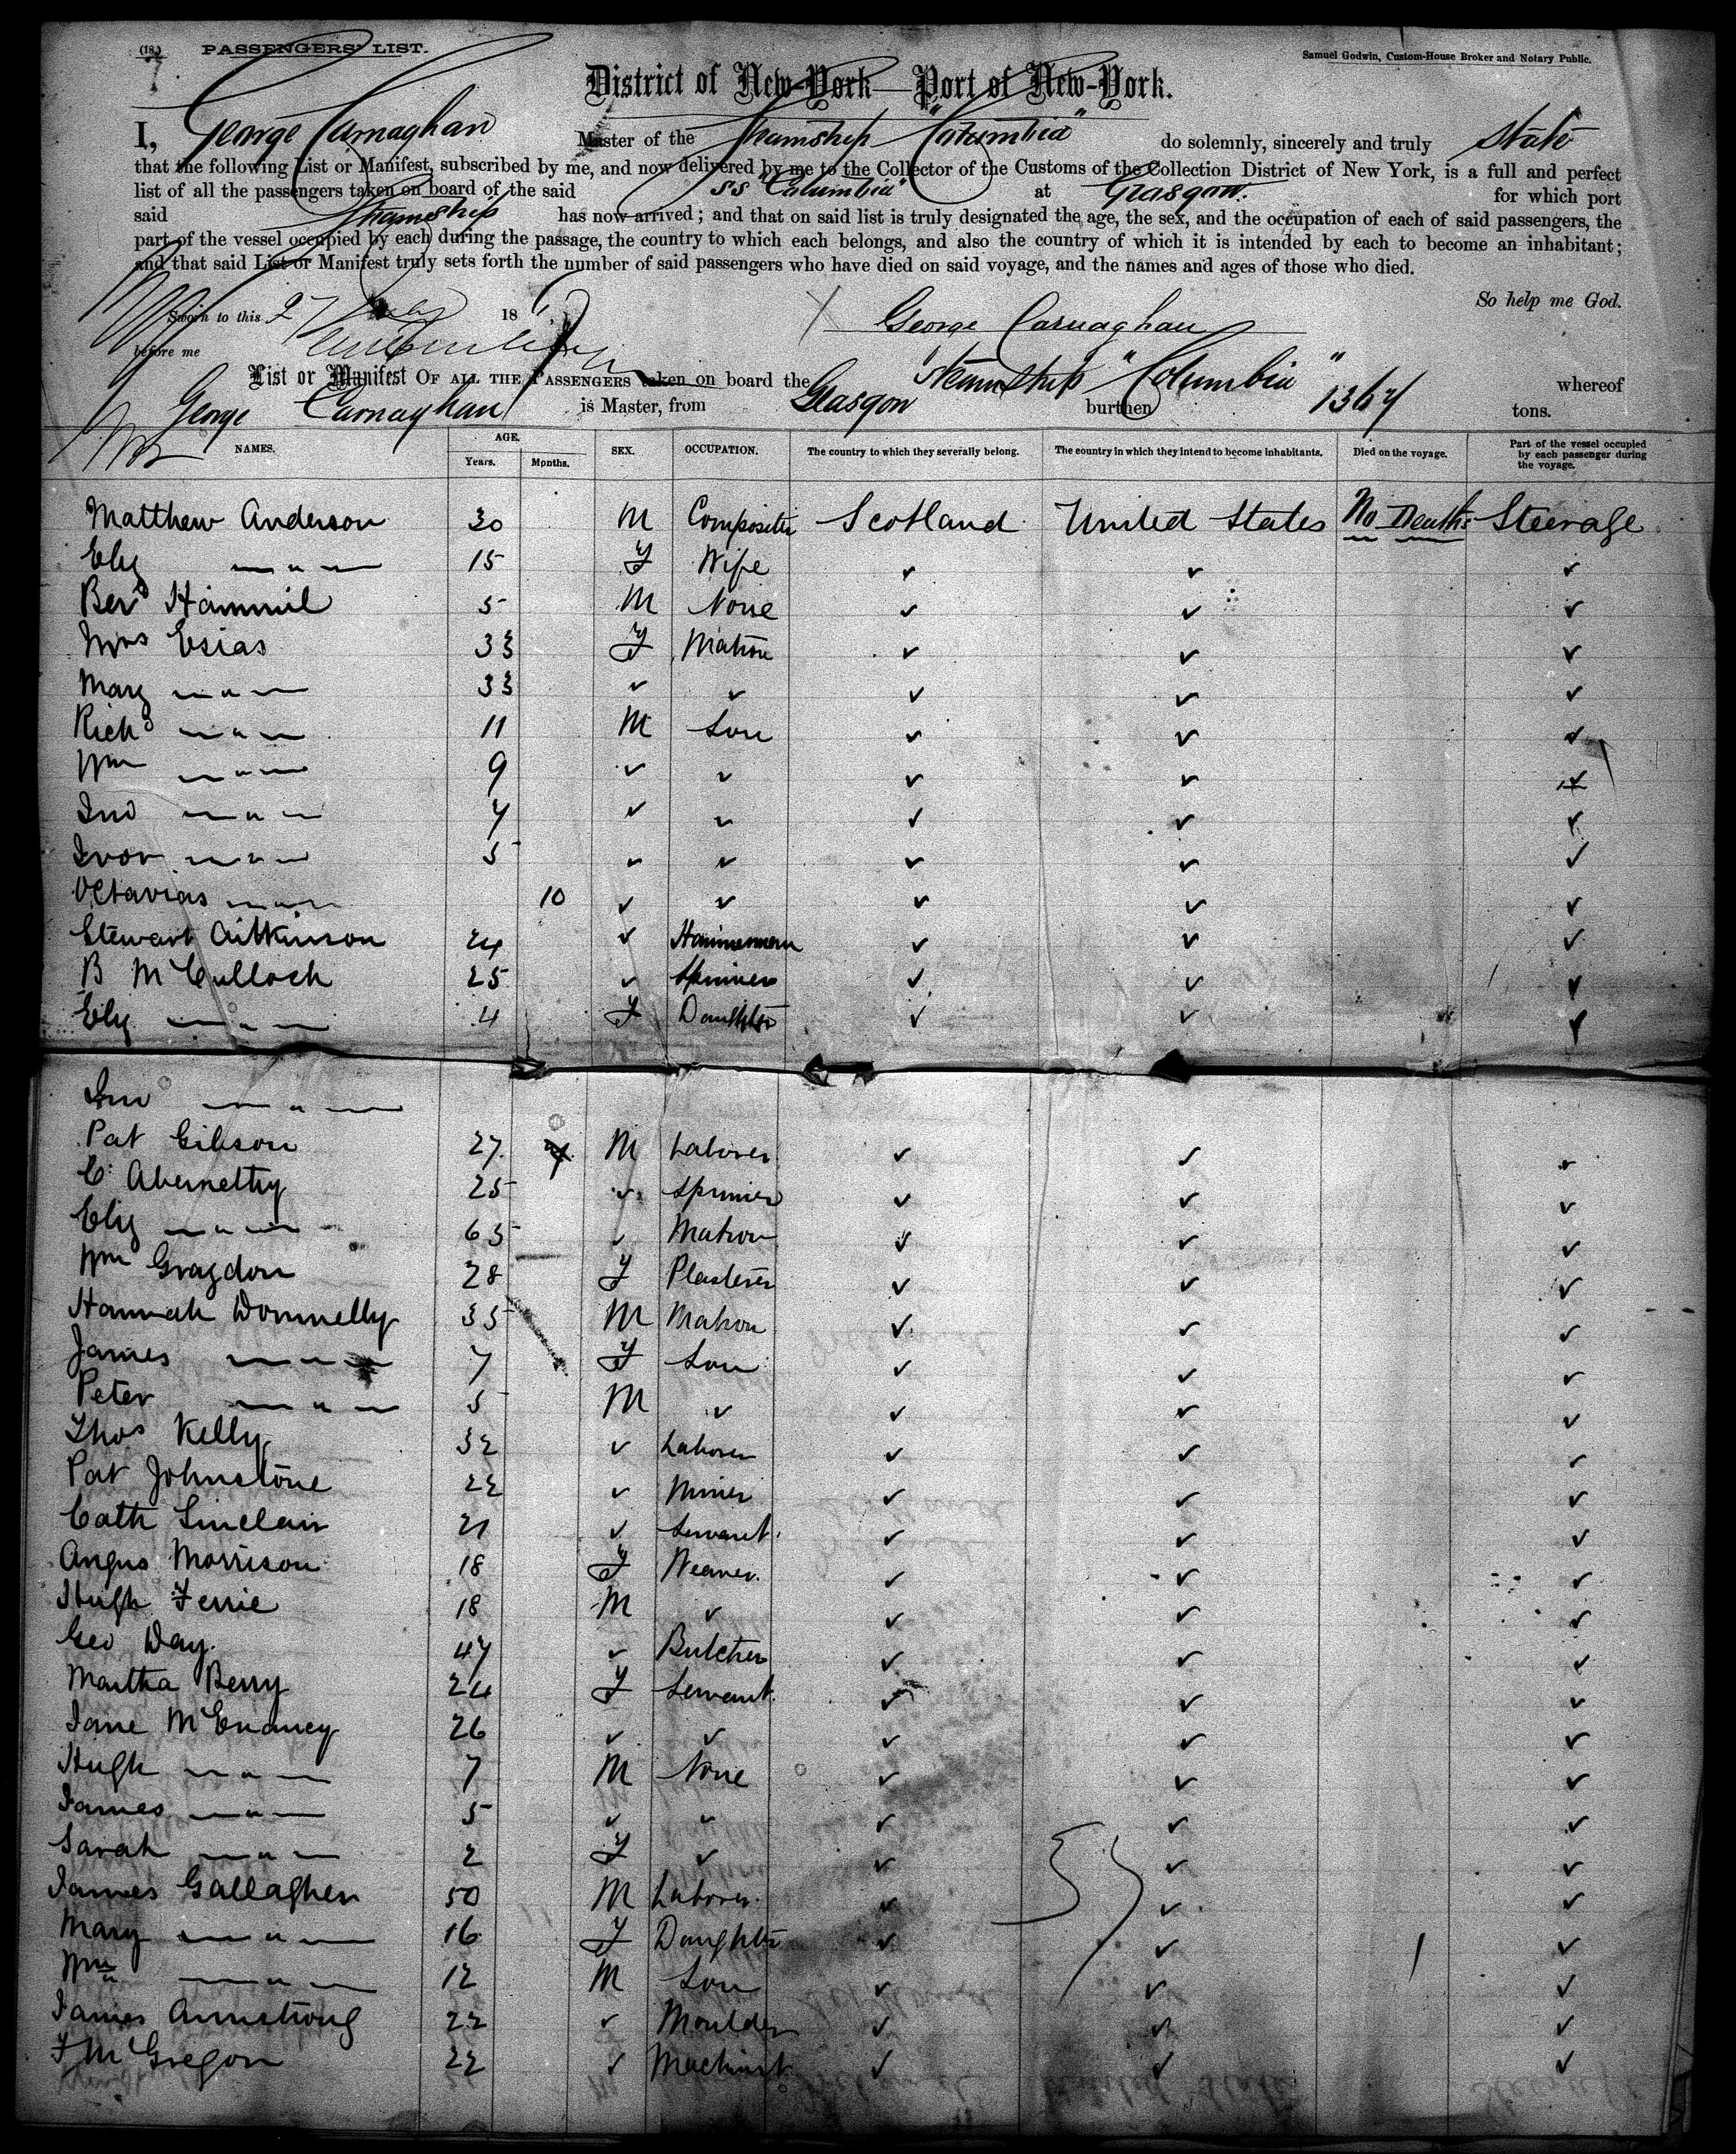 (18.) PASSENGERS' LIST.
Samuel Godwin, Custom-House Broker and Notary Public.
District of New-York—Port of New-York.
I, George Carnaghan Master of the Steamship "Columbia" do solemnly, sincerely and truly State
that the following List or Manifest, subscribed by me, and now delivered by me to the Collector of the Customs of the Collection District of New York, is a full and perfect
list of all the passengers taken on board of the said SS "Columbia" at Glasgow. for which port
said Steamship has now arrived; and that on said list is truly designated the age, the sex, and the occupation of each of said passengers, the
part of the vessel occupied by each during the passage, the country to which each belongs, and also the country of which it is intended by each to become an inhabitant;
and that said List or Manifest truly sets forth the number of said passengers who have died on said voyage, and the names and ages of those who died.
So help me God.
Sworn to this 27 18
George Carnaghan
before me
List or Manifest OF ALL THE PASSENGERS taken on board the Steamship "Columbia" whereof
George Carnaghan is Master, from Glasgow burthen 1367 tons.
NAMES. AGE. Years. Months. SEX. OCCUPATION. The country to which they severally belong. The country in which they intend to become inhabitants. Died on the voyage. Part of the vessel occupied by each passenger during the voyage.
Matthew Anderson 30 M Compositor Scotland United States No Deaths Steerage
Eliz —"— 15 F Wife ✓ ✓ ✓
Berd Hammil 5 M None ✓ ✓ ✓
Mrs Esias 33 F Matron ✓ ✓ ✓
Mary —"— 33 ✓ ✓ ✓ ✓ ✓
Richd —"— 11 M Son ✓ ✓ ✓
Wm —"— 9 ✓ ✓ ✓ ✓ ✓
Jno —"— 7 ✓ ✓ ✓ ✓ ✓
Ivor —"— 5 ✓ ✓ ✓ ✓ ✓
Octavias —"— 10 ✓ ✓ ✓ ✓ ✓
Stewart Aitkinson 24 ✓ Hammerman ✓ ✓ ✓
B McCulloch 25 ✓ Spinner ✓ ✓ ✓
Eliz —"— 4 F Daughter ✓ ✓ ✓
Jno —"—
Pat Gibson 27 M Laborer ✓ ✓ ✓
C. Abernethy 25 ✓ Spinner ✓ ✓ ✓
Eliz —"— 65 ✓ Matron ✓ ✓ ✓
Wm Gragdon 28 F Plasterer ✓ ✓ ✓
Hannah Donnelly 35 M Matron ✓ ✓ ✓
James —"— 7 F Son ✓ ✓ ✓
Peter —"— 5 M ✓ ✓ ✓ ✓
Thos Kelly 32 ✓ Laborer ✓ ✓ ✓
Pat Johnstone 22 ✓ Miner ✓ ✓ ✓
Cath Sinclair 21 ✓ Servant. ✓ ✓ ✓
Angus Morrison 18 F Weaver. ✓ ✓ ✓
Hugh Ferrie 18 M ✓ ✓ ✓ ✓
Geo Day. 47 ✓ Butcher ✓ ✓ ✓
Martha Berry 24 F Servant. ✓ ✓ ✓
Jane McEnaney 26 ✓ ✓ ✓ ✓ ✓
Hugh —"— 7 M None ✓ ✓ ✓
James —"— 5 ✓ ✓ ✓ ✓ ✓
Sarah —"— 2 F ✓ ✓ ✓ ✓
James Gallagher 50 M Laborer. ✓ ✓ ✓
Mary —"— 16 F Daughter ✓ ✓ ✓
Wm —"— 12 M Son ✓ ✓ ✓
James Armstrong 22 ✓ Moulder ✓ ✓ ✓
J McGregor 22 ✓ Machinist ✓ ✓ ✓